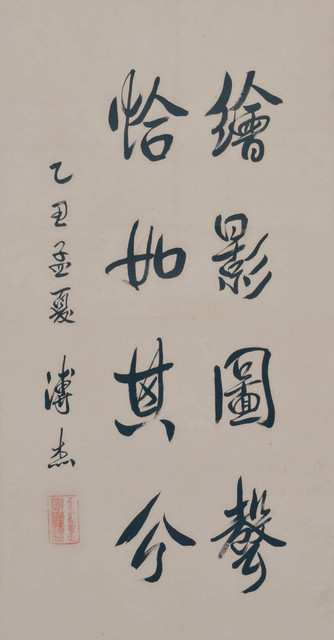 繪影圖聲
恰如其分
乙丑孟夏 溥杰